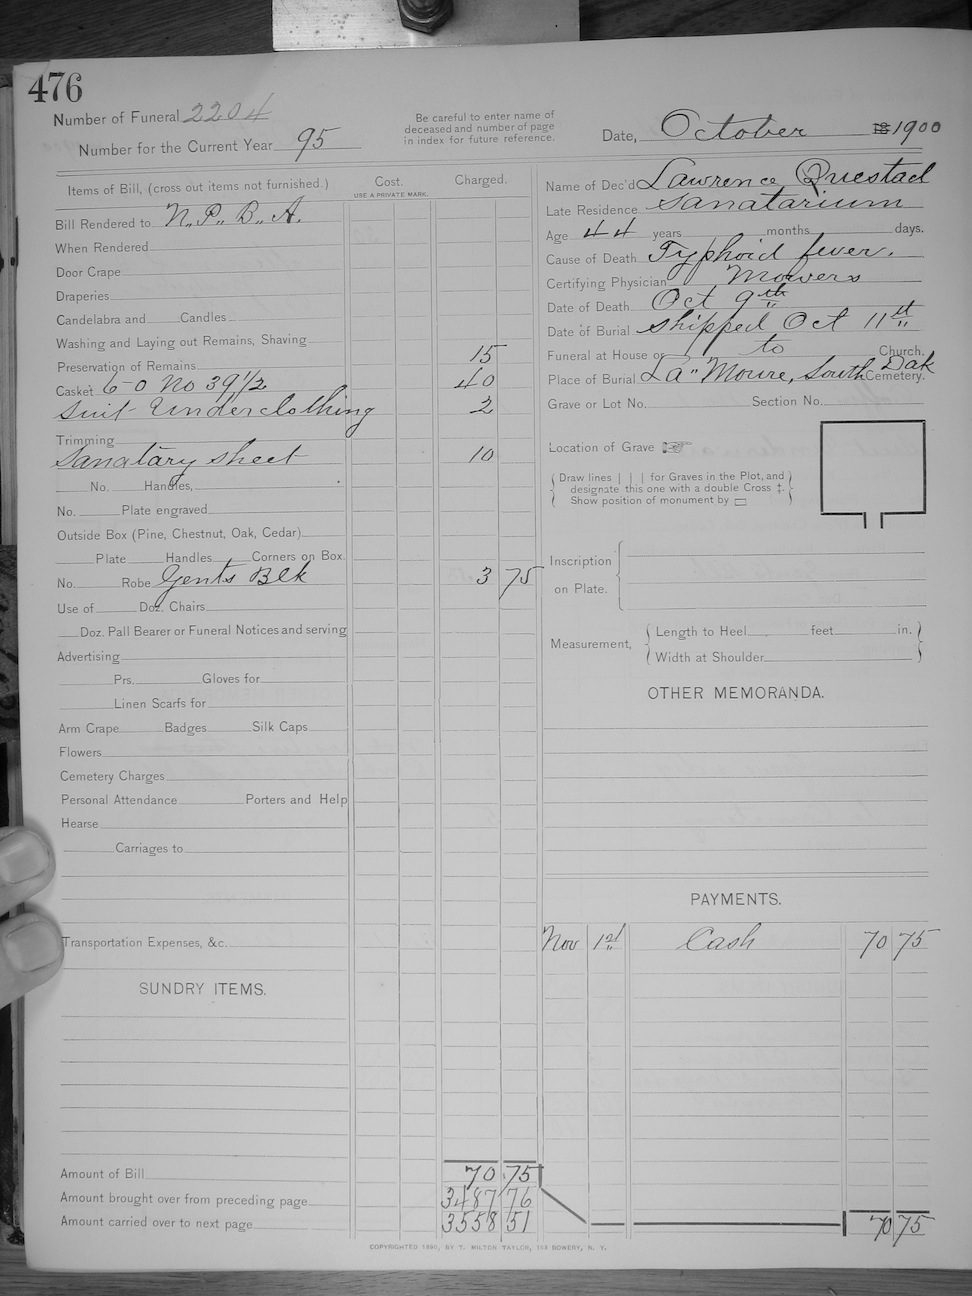 476
Number of Funeral 2204
Number for the Current Year 95
Be careful to enter name of
deceased and number of page
in index for future reference.
Date, October 18 1900
Items of Bill, (cross out items not furnished.)
Cost.
USE A PRIVATE MARK.
Charged.
Bill Rendered to N.P.B.A.
When Rendered
Door Crape
Draperies
Candelabra and Candles
Washing and Laying out Remains, Shaving
Preservation of Remains 15
Casket 6-0 No 39 1/2 40
Suit Underclothing 2
Trimming
Sanatary sheet 10
No. Handles,
No. Plate engraved
Outside Box (Pine, Chestnut, Oak, Cedar)
Plate Handles Corners on Box.
No. Robe Gents Blk 3 75
Use of Doz. Chairs
Doz. Pall Bearer or Funeral Notices and serving
Advertising
Prs. Gloves for
Linen Scarfs for
Arm Crape Badges Silk Caps
Flowers
Cemetery Charges
Personal Attendance Porters and Help
Hearse
Carriages to
Transportation Expenses, &c.
SUNDRY ITEMS.
Amount of Bill 70 75
Amount brought over from preceding page 3487 76
Amount carried over to next page 3558 51
Name of Dec'd Lawrence Questad
Late Residence Sanatarium
Age 44 years months days.
Cause of Death Typhoid fever.
Certifying Physician Mowers
Date of Death Oct 9th
Date of Burial shipped Oct 11st
Funeral at House or to Church.
Place of Burial La" Moure, South Dak Cemetery.
Grave or Lot No. Section No.
Location of Grave
Draw lines | | | for Graves in the Plot, and
designate this one with a double Cross ‡.
Show position of monument by ▭
Inscription
on Plate.
Measurement,
Length to Heel feet in.
Width at Shoulder
OTHER MEMORANDA.
PAYMENTS.
Nov 1st Cash 70 75
70 75
COPYRIGHTED 1890, BY T. MILTON TAYLOR, 163 BOWERY, N. Y.